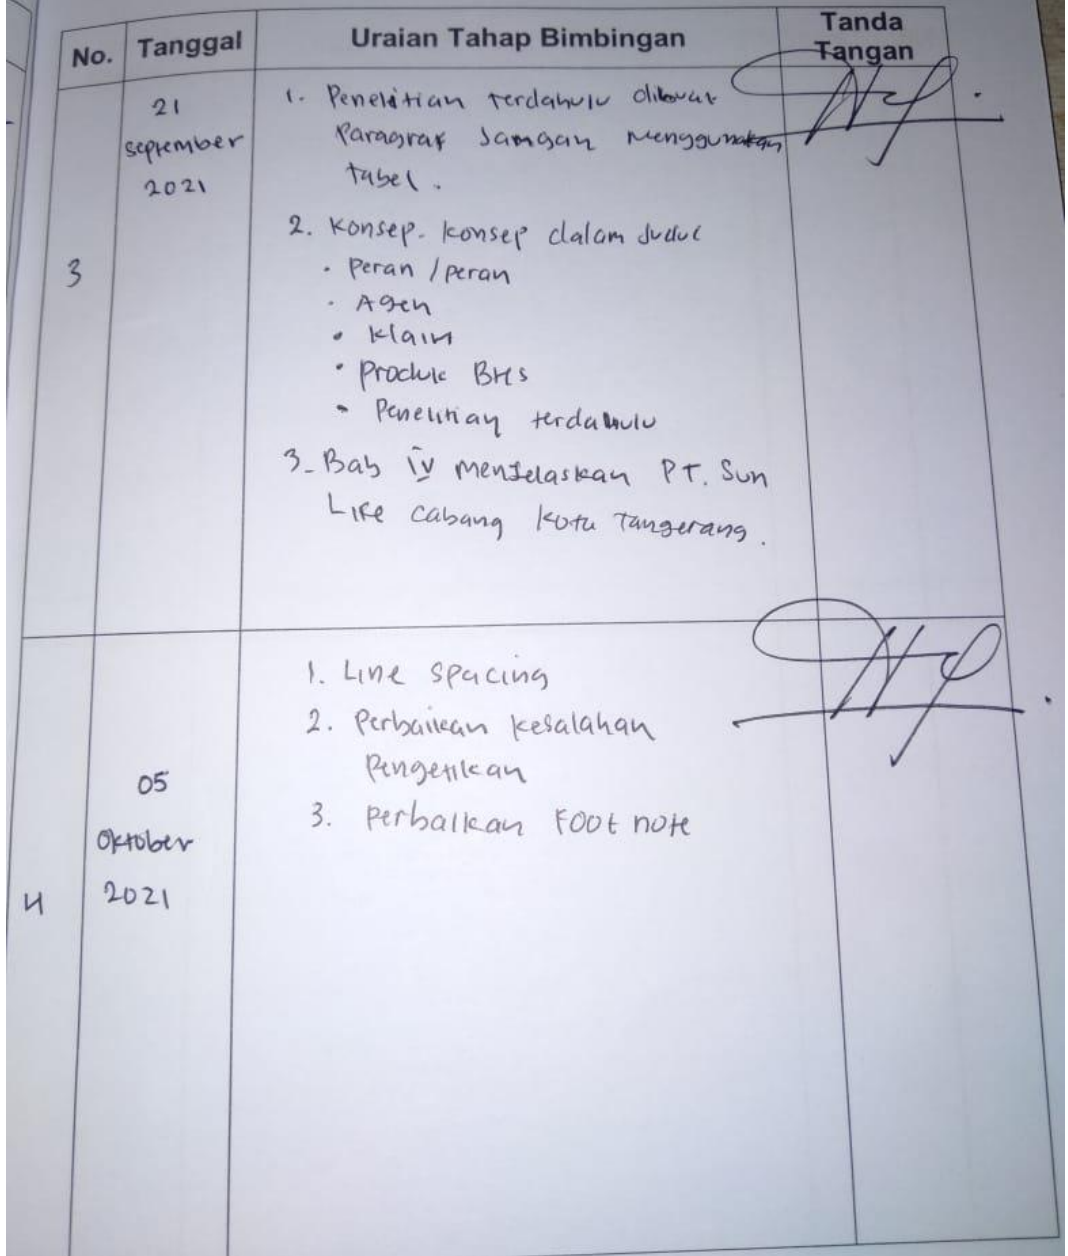 No.
Tanggal
Uraian Tahap Bimbingan
Tanda
Tangan
3
21
September
2021
1. Penelitian terdahulu dibuat
Paragraf Jamgan menggunakan
tabel.
2. Konsep-konsep dalam Judul
• Peran / peran
• Agen
• Klaim
• Produk BHS
• Penelitian terdahulu
3. Bab IV menjelaskan PT. Sun
Life cabang Kota Tangerang.
4
05
Oktober
2021
1. Line spacing
2. Perbaikan kesalahan
Pengetikan
3. Perbaikan Foot note